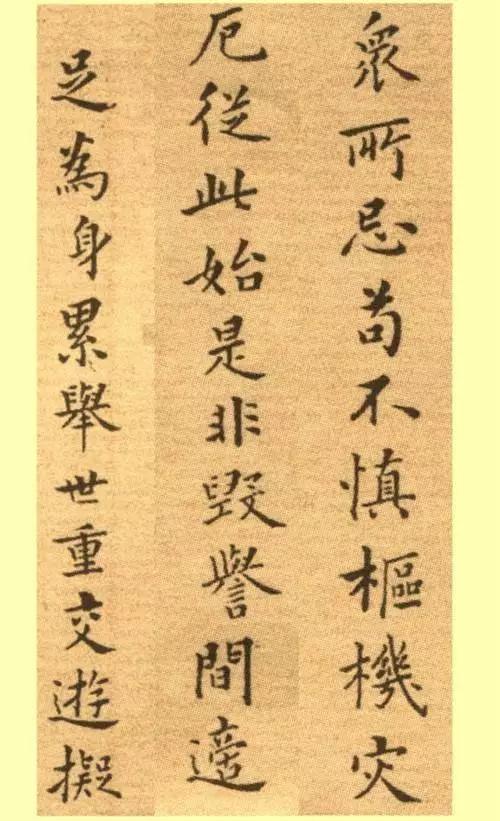 衆所忌苟不慎樞機灾
厄從此始是非毀譽間適
足為身累舉世重交遊擬